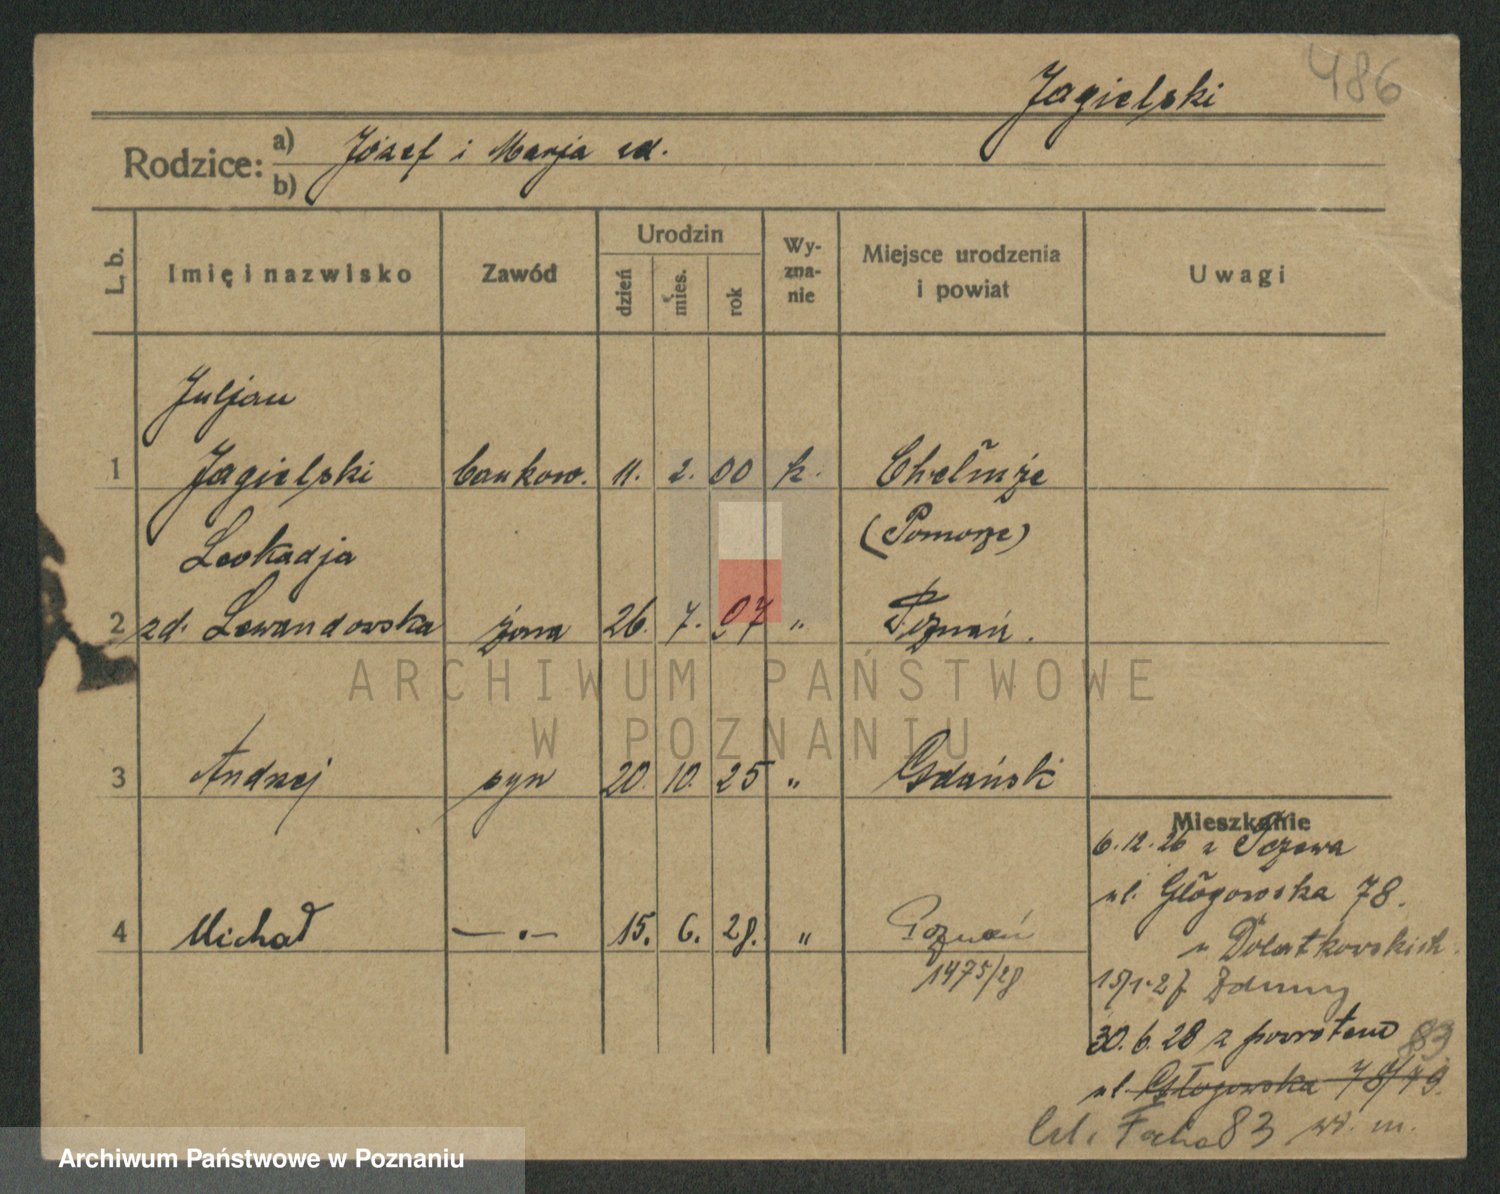 486
Jagielski
Rodzice: a) Józef i Marja
b)
L. b. Imię i nazwisko Zawód Urodzin dzień mies. rok Wy-zna-nie Miejsce urodzenia i powiat Uwagi
Juljan
1 Jagielski bankow. 11. 2. 00 k. Chełmże
(Pomorze)
Leokadja
2 zd. Lewandowska żona 26. 7. 97 " Poznań.
ARCHIWUM PAŃSTWOWE
W POZNANIU
3 Andrzej syn 20. 10. 25 " Gdański
Mieszkanie
6.12.26 z Tczewa
ul. Głogowska 78.
u Dolatkowskich
4 Michał — . — 15. 6. 28. " Poznań
1475/28
Zduny
30.6.28 z powrotem 83
ul. Głogowska 78/79.
83 w. m.
Archiwum Państwowe w Poznaniu